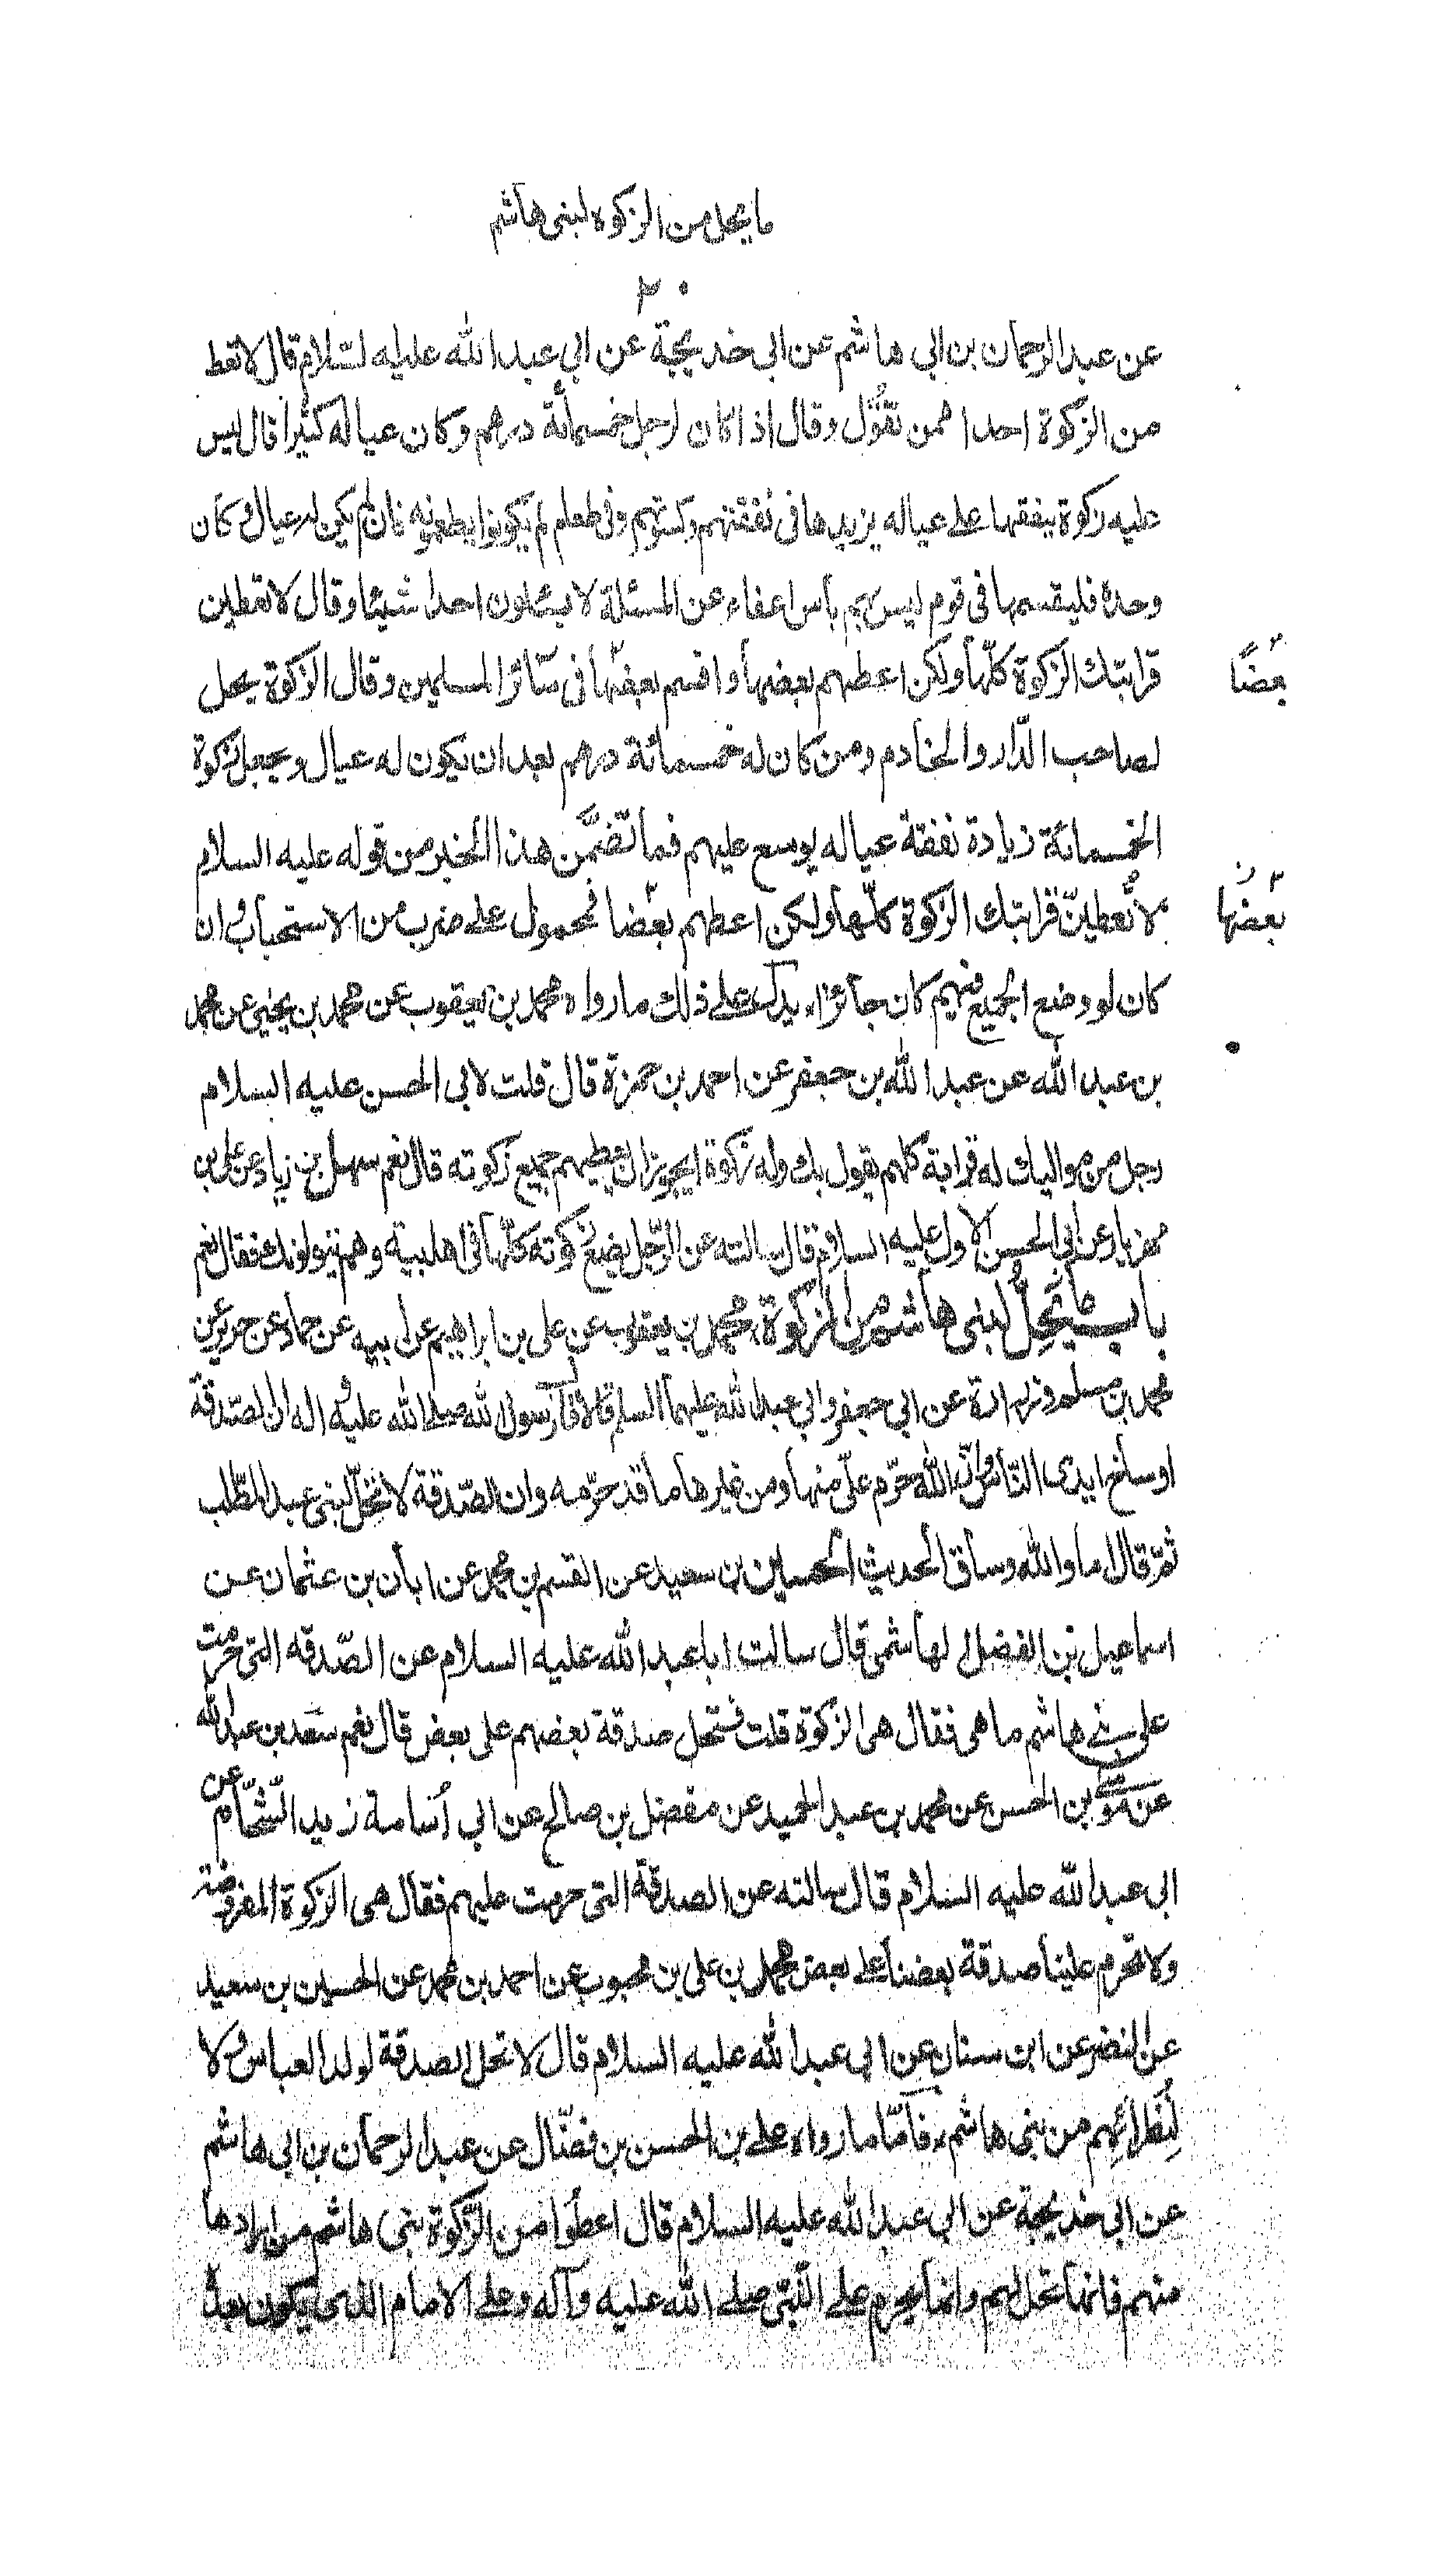 ما يحل من الزكوة لبنى هاشم
عن عبد الرحمان بن ابى هاشم عن ابى خديجة عن ابى عبد الله عليه لسّلام قال لا تعط
من الزكوة احدا ممن تعُول وقال اذا كان لرجل خمسمائة درهم وكان عياله كثيرا قال ليس
عليه زكوة ينفقها على عياله يزيدها فى نفقتهم وكسوتهم وفى طعام لم يكونوا يطعمونه فان لم يكن له عيال وكان
وحده فليقسمها فى قوم ليس بهم بأس اعفاء عن المسئلة لا يسئلون احدا شيئا وقال لا تعطين
قرابتك الزكوة كلّها ولكن اعطهم بعضها واقسم بعضها فى سائر المسلمين وقال الزكوة يحل
بعضًا
لصاحب الدّار والخادم ومن كان له خمسمائة درهم بعد ان يكون له عيال ويجعل زكوة
الخمسمائة زيادة نفقة عياله يوسع عليهم فما تضمَّن هذا الخبر من قوله عليه السلام
لا تُعطينّ قرابتك الزكوة كلّها ولكن اعطهم بعضا فمحمول على ضرب من الاستحباب وان
بعضها
كان لو وضع الجميع فيهم كان جائزا، يدل على ذلك ما رواه محمد بن يعقوب عن محمد بن يحيى عن محمد
بن عبد الله عن عبد الله بن جعفر عن احمد بن حمزة قال قلت لابى الحسن عليه السلام
رجل من مواليك له قرابة كلهم يقول بك وله زكوة ايجوز ان يعطيهم جميع زكوته قال نعم سهل بن زياد عن على بن
مهزيار عن ابى الحسن الاول عليه السلام قال سالته عن الرّجل يضع زكوته كلّها فى اهل بيته وهم يتولونك فقال نعم
باب ما تَحِلُّ لبنى هاشم من الزكوة، محمد بن يعقوب عن على بن ابراهيم عن ابيه عن حماد عن حريز عن
محمد بن مسلم وزرارة عن ابى جعفر وابى عبد الله عليهما السلم قالا قال رسول الله صلى الله عليه واله ان الصّدقة
اوساخ ايدى النّاس وانّ الله حرّم علىّ منها ومن غيرها ما قد حرّمه وان الصّدقة لا تحلّ لبنى عبد المطّلب
ثمّ قال اما والله وساق الحديث الحسين بن سعيد عن القسم بن محمد عن ابان بن عثمان عن
اسماعيل بن الفضل لهاشمى قال سالت ابا عبد الله عليه السلام عن الصّدقه التى حرمت
على بنى هاشم ما هى فقال هى الزكوة قلت فتحل صدقة بعضهم على بعض قال نعم سعد بن عبد الله
عن موسى بن الحسن عن محمد بن عبد الحميد عن مفضل بن صالح عن ابى أسامة زيد الشّحّام عن
ابى عبد الله عليه السلام قال سالته عن الصدقة التى حرمت عليهم فقال هى الزكوة المفروضة
ولا تحرم علينا صدقة بعضنا على بعض محمد بن على بن محبوب عن احمد بن محمد عن الحسين بن سعيد
عن النضر عن ابن سنان عن ابى عبد الله عليه السلام قال لا تحل الصدقة لولد العباس ولا
لِنُظرائِهم من بنى هاشم، فامّا ما رواه على بن الحسن بن فضّال عن عبد الرحمان بن ابى هاشم
عن ابى خديجة عن ابى عبد الله عليه السلام قال اعطُوا من الزّكوة بنى هاشم من ارادها
منهم فانها تحل لهم وانما يحرم على النّبىّ صلى الله عليه وآله وعلى الامام الذى يكون بعده